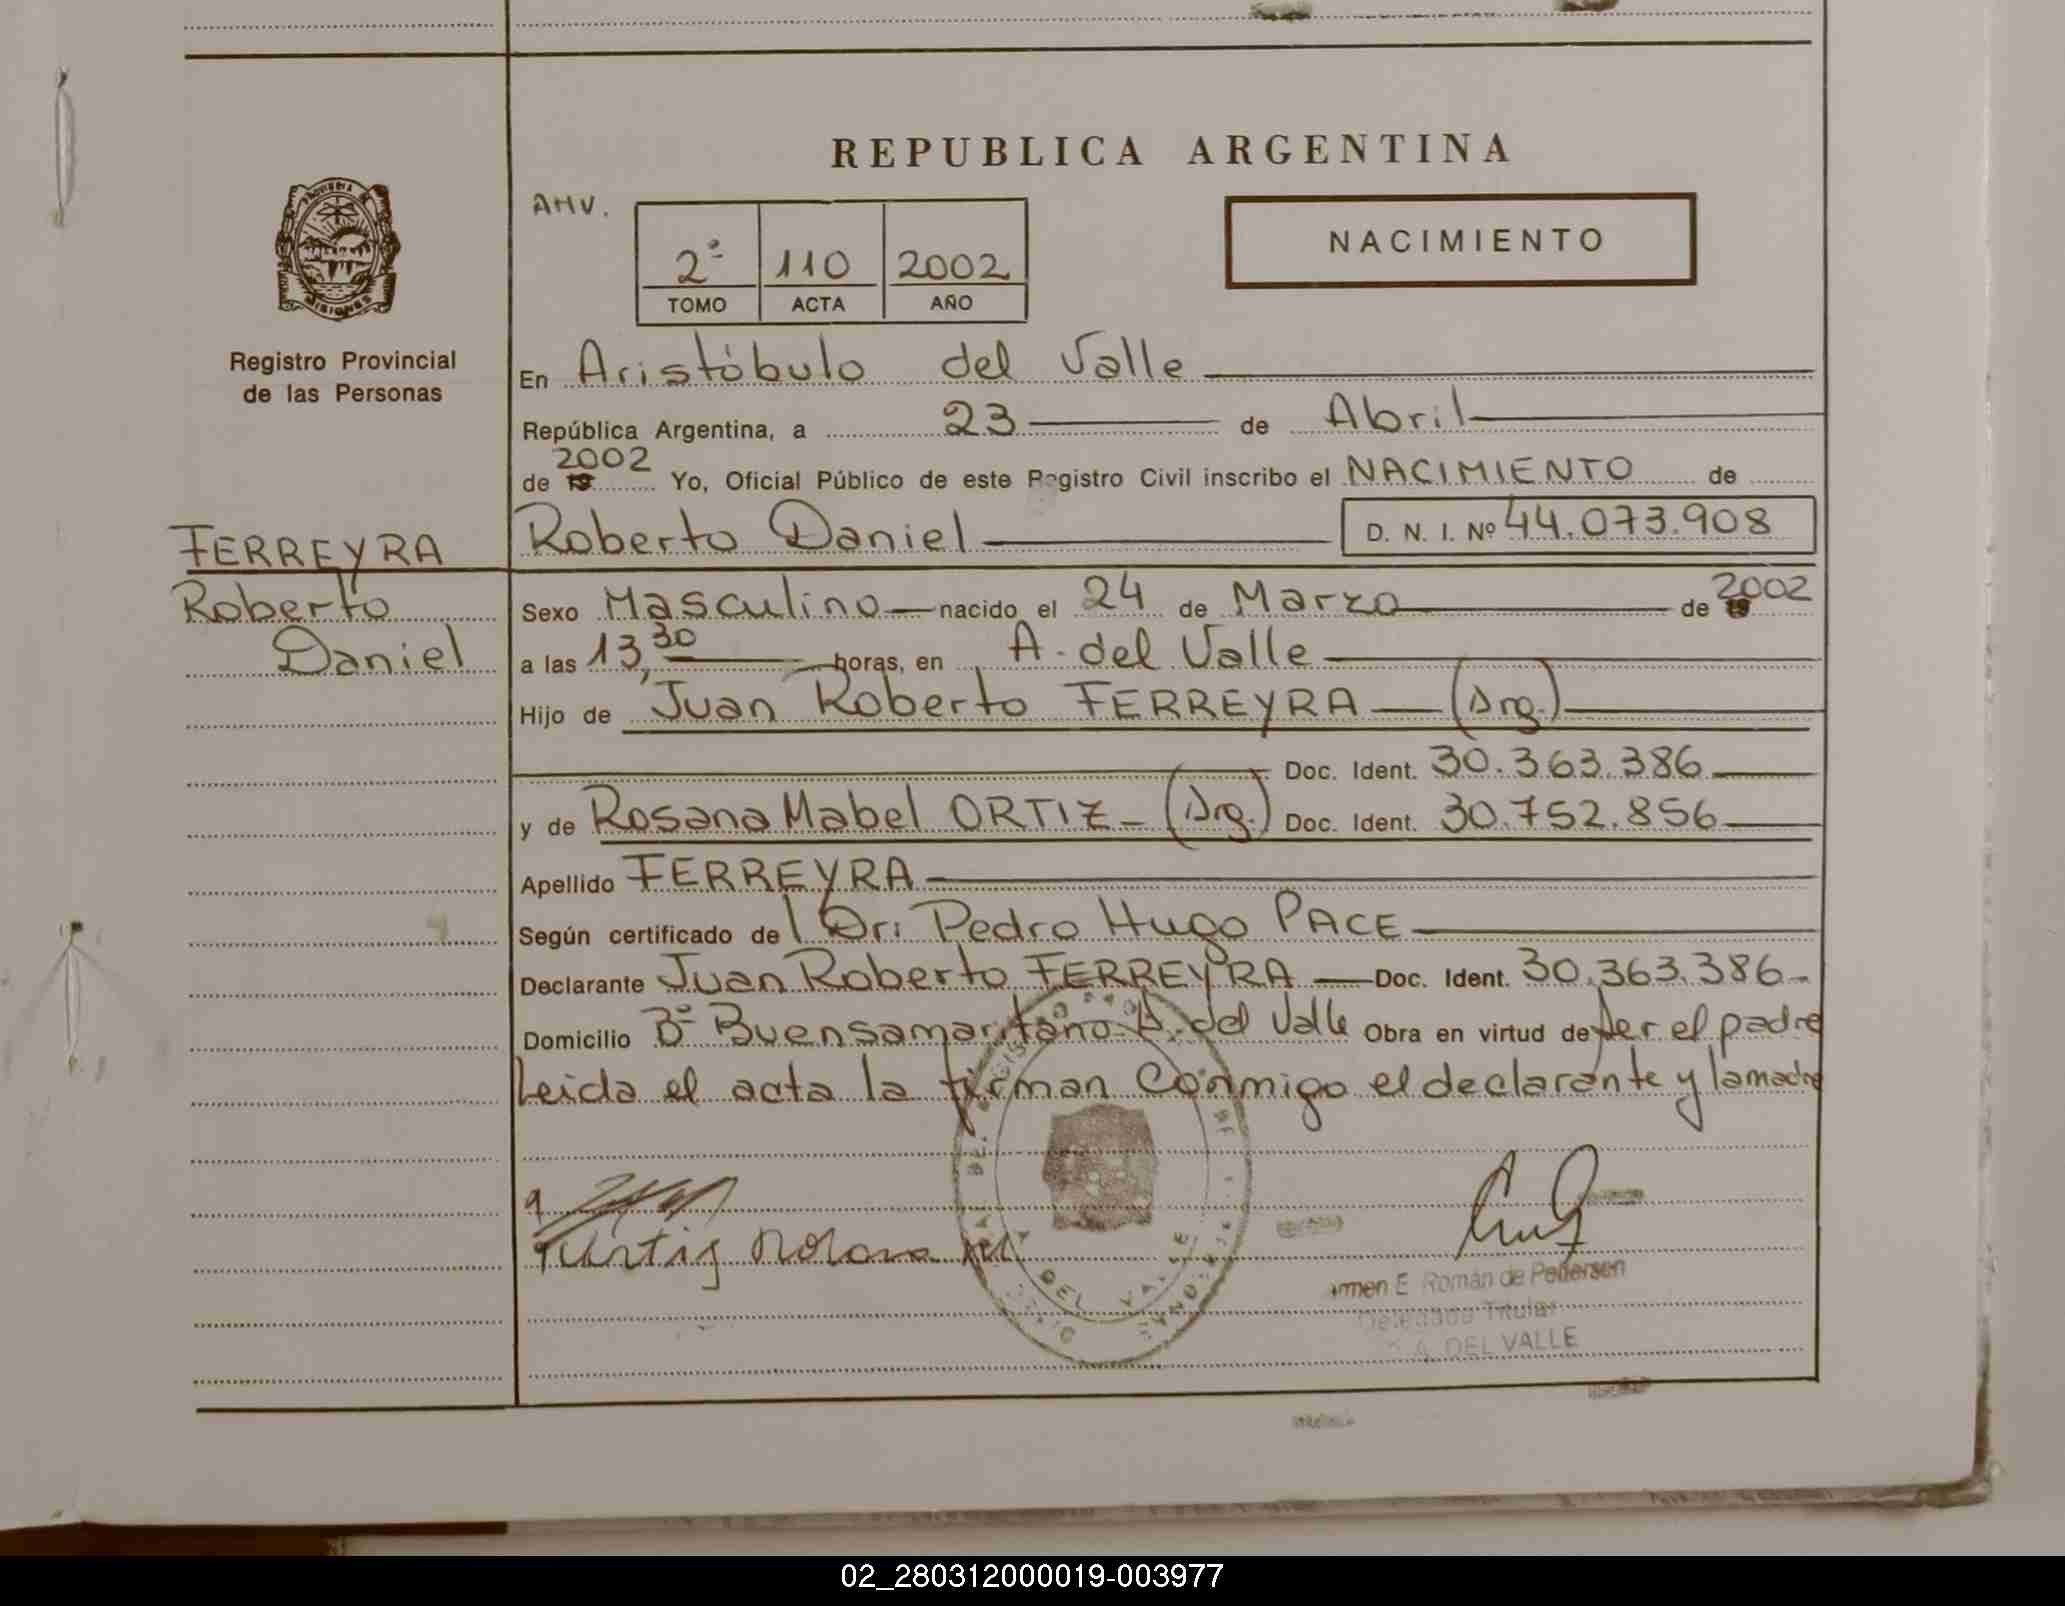 REPUBLICA ARGENTINA
AHV.
2º 110 2002
TOMO ACTA AÑO
NACIMIENTO
PROVINCIA DE
MISIONES
Registro Provincial
de las Personas
En Aristóbulo del Valle
República Argentina, a 23 de Abril
2002
de 19 Yo, Oficial Público de este Registro Civil inscribo el NACIMIENTO de
Roberto Daniel D. N. I. Nº 44.073.908
FERREYRA
Roberto
Daniel
Sexo Masculino nacido el 24 de Marzo de 19 2002
a las 13,30 horas, en A. del Valle
Hijo de Juan Roberto FERREYRA (Arg.)
Doc. Ident. 30.363.386
y de Rosana Mabel ORTIZ - (Arg.) Doc. Ident. 30.752.856
Apellido FERREYRA
Según certificado de l Dr: Pedro Hugo PACE
Declarante Juan Roberto FERREYRA Doc. Ident. 30.363.386-
Domicilio Bº Buensamaritano A. del Valle Obra en virtud de ser el padre
Leida el acta la firman conmigo el declarante y la madre
DEL VALLE
Román de Pedersen
Delegado Titular
A. DEL VALLE
02_280312000019-003977